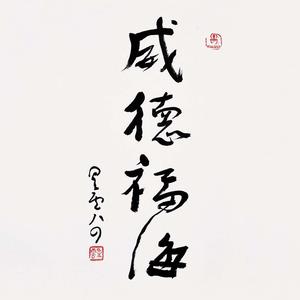 威德福海
星雲八十